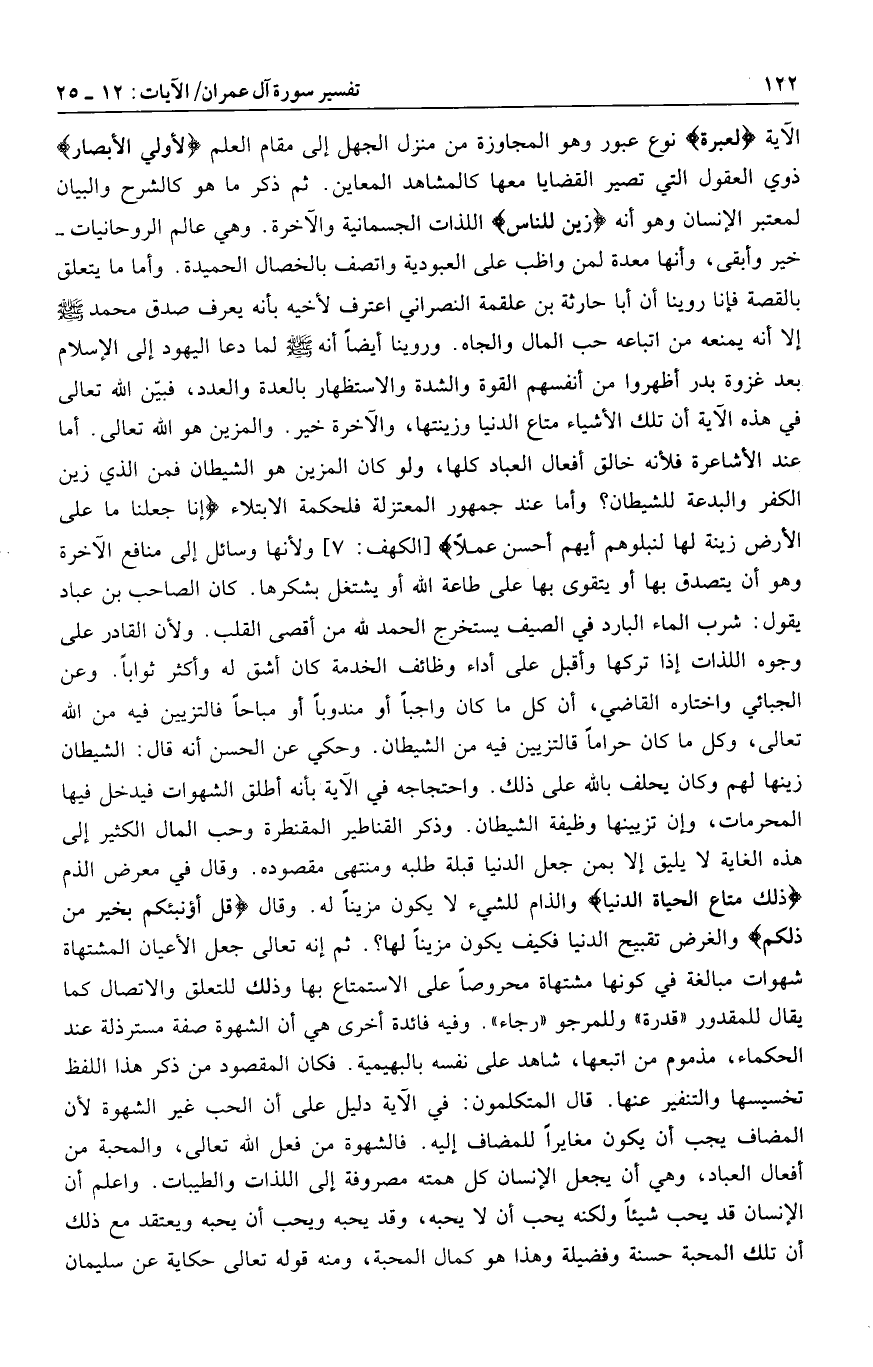 ١٢٢
تفسير سورة آل عمران/ الآيات: ١٢ ـ ٢٥
الآية ﴿لعبرة﴾ نوع عبور وهو المجاوزة من منزل الجهل إلى مقام العلم ﴿لأولي الأبصار﴾
ذوي العقول التي تصير القضايا معها كالمشاهد المعاين. ثم ذكر ما هو كالشرح والبيان
لمعتبر الإنسان وهو أنه ﴿زين للناس﴾ اللذات الجسمانية والآخرة. وهي عالم الروحانيات ـ
خير وأبقى، وأنها معدة لمن واظب على العبودية واتصف بالخصال الحميدة. وأما ما يتعلق
بالقصة فإنا روينا أن أبا حارثة بن علقمة النصراني اعترف لأخيه بأنه يعرف صدق محمد ﷺ
إلا أنه يمنعه من اتباعه حب المال والجاه. وروينا أيضاً أنه ﷺ لما دعا اليهود إلى الإسلام
بعد غزوة بدر أظهروا من أنفسهم القوة والشدة والاستظهار بالعدة والعدد، فبيّن الله تعالى
في هذه الآية أن تلك الأشياء متاع الدنيا وزينتها، والآخرة خير. والمزين هو الله تعالى. أما
عند الأشاعرة فلأنه خالق أفعال العباد كلها، ولو كان المزين هو الشيطان فمن الذي زين
الكفر والبدعة للشيطان؟ وأما عند جمهور المعتزلة فلحكمة الابتلاء ﴿إنا جعلنا ما على
الأرض زينة لها لنبلوهم أيهم أحسن عملاً﴾ [الكهف: ٧] ولأنها وسائل إلى منافع الآخرة
وهو أن يتصدق بها أو يتقوى بها على طاعة الله أو يشتغل بشكرها. كان الصاحب بن عباد
يقول: شرب الماء البارد في الصيف يستخرج الحمد لله من أقصى القلب. ولأن القادر على
وجوه اللذات إذا تركها وأقبل على أداء وظائف الخدمة كان أشق له وأكثر ثواباً. وعن
الجبائي واختاره القاضي، أن كل ما كان واجباً أو مندوباً أو مباحاً فالتزيين فيه من الله
تعالى، وكل ما كان حراماً فالتزيين فيه من الشيطان. وحكي عن الحسن أنه قال: الشيطان
زينها لهم وكان يحلف بالله على ذلك. واحتجاجه في الآية بأنه أطلق الشهوات فيدخل فيها
المحرمات، وإن تزيينها وظيفة الشيطان. وذكر القناطير المقنطرة وحب المال الكثير إلى
هذه الغاية لا يليق إلا بمن جعل الدنيا قبلة طلبه ومنتهى مقصوده. وقال في معرض الذم
﴿ذلك متاع الحياة الدنيا﴾ والذام للشيء لا يكون مزيناً له. وقال ﴿قل أؤنبئكم بخير من
ذلكم﴾ والغرض تقبيح الدنيا فكيف يكون مزيناً لها؟. ثم إنه تعالى جعل الأعيان المشتهاة
شهوات مبالغة في كونها مشتهاة محروصاً على الاستمتاع بها وذلك للتعلق والاتصال كما
يقال للمقدور «قدرة» وللمرجو «رجاء». وفيه فائدة أخرى هي أن الشهوة صفة مسترذلة عند
الحكماء، مذموم من اتبعها، شاهد على نفسه بالبهيمية. فكان المقصود من ذكر هذا اللفظ
تخسيسها والتنفير عنها. قال المتكلمون: في الآية دليل على أن الحب غير الشهوة لأن
المضاف يجب أن يكون مغايراً للمضاف إليه. فالشهوة من فعل الله تعالى، والمحبة من
أفعال العباد، وهي أن يجعل الإنسان كل همته مصروفة إلى اللذات والطيبات. واعلم أن
الإنسان قد يحب شيئاً ولكنه يحب أن لا يحبه، وقد يحبه ويحب أن يحبه ويعتقد مع ذلك
أن تلك المحبة حسنة وفضيلة وهذا هو كمال المحبة، ومنه قوله تعالى حكاية عن سليمان